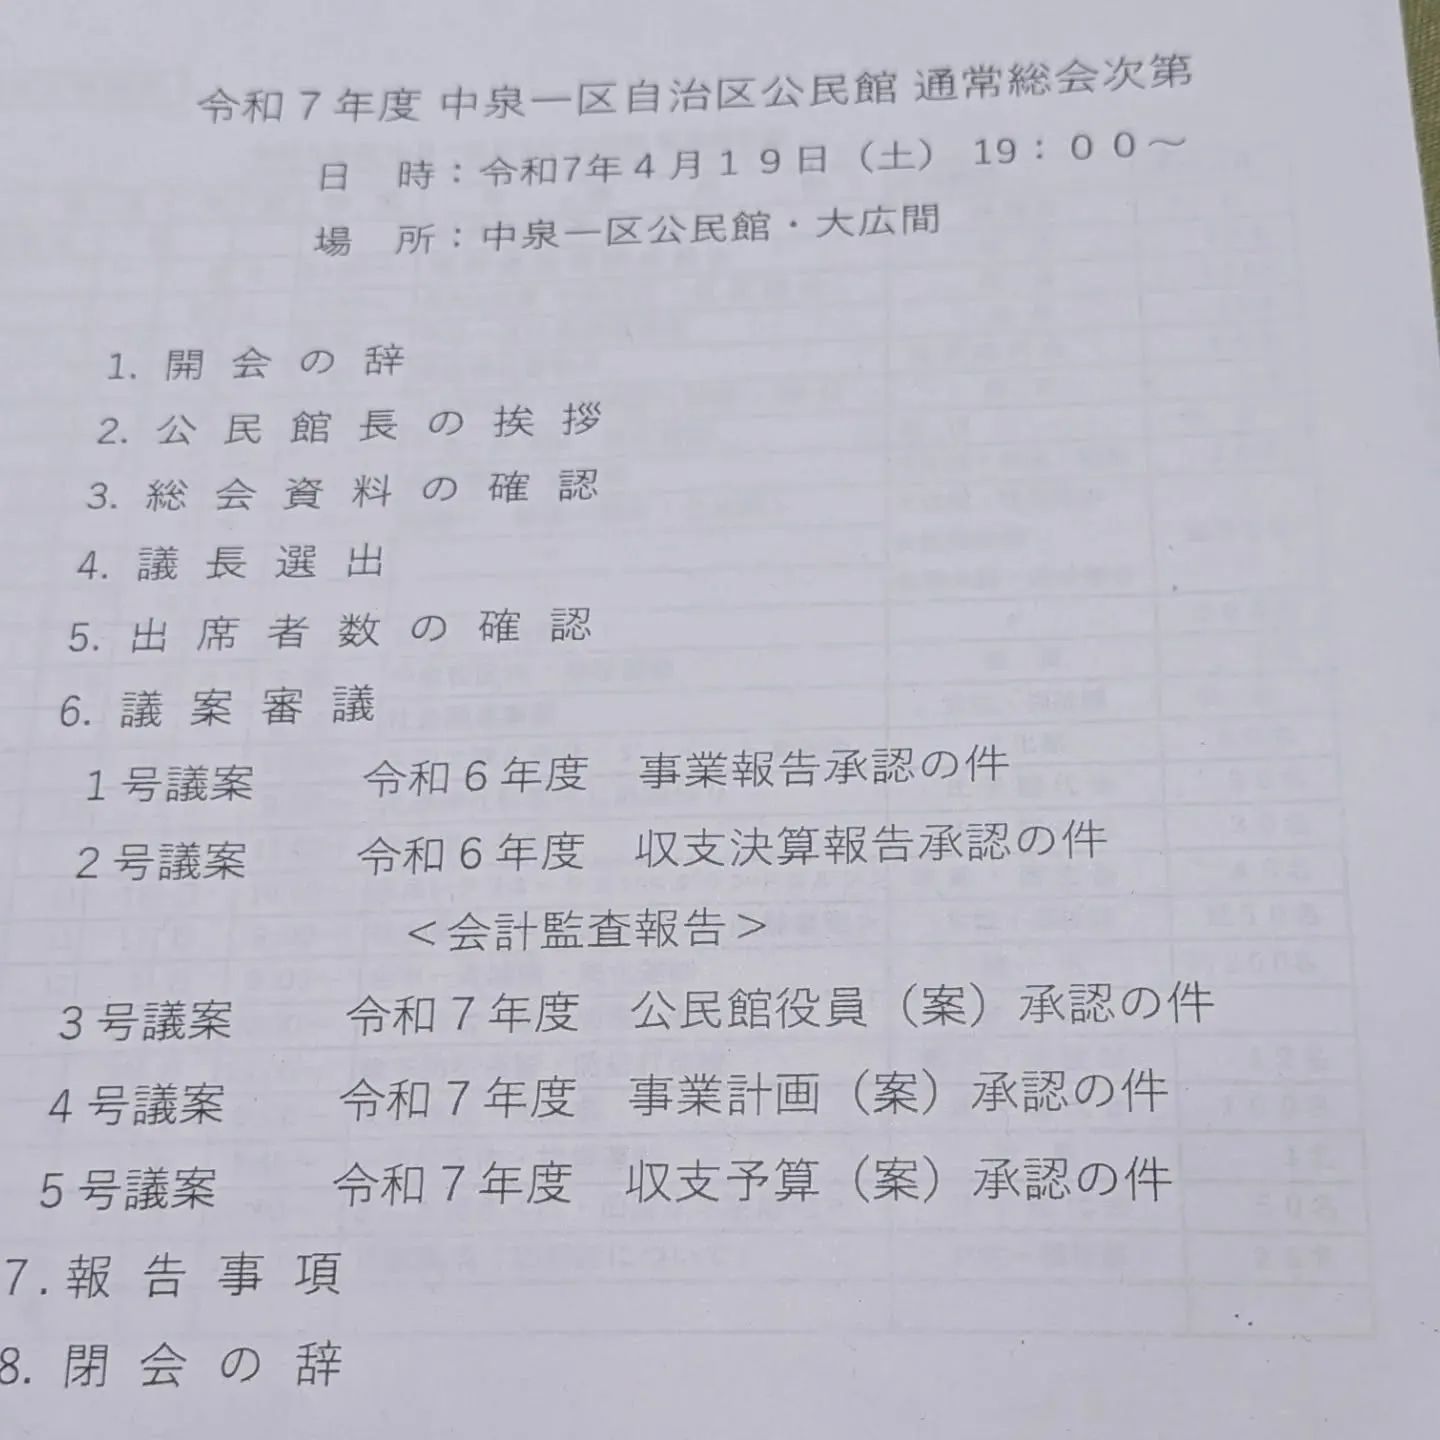 令和７年度 中泉一区自治区公民館 通常総会次第
日　時：令和7年４月１９日（土） 19：００～
場　所：中泉一区公民館・大広間
1. 開会の辞
2. 公民館長の挨拶
3. 総会資料の確認
4. 議長選出
5. 出席者数の確認
6. 議案審議
１号議案　令和６年度　事業報告承認の件
２号議案　令和６年度　収支決算報告承認の件
＜会計監査報告＞
３号議案　令和７年度　公民館役員（案）承認の件
４号議案　令和７年度　事業計画（案）承認の件
５号議案　令和７年度　収支予算（案）承認の件
7. 報告事項
8. 閉会の辞